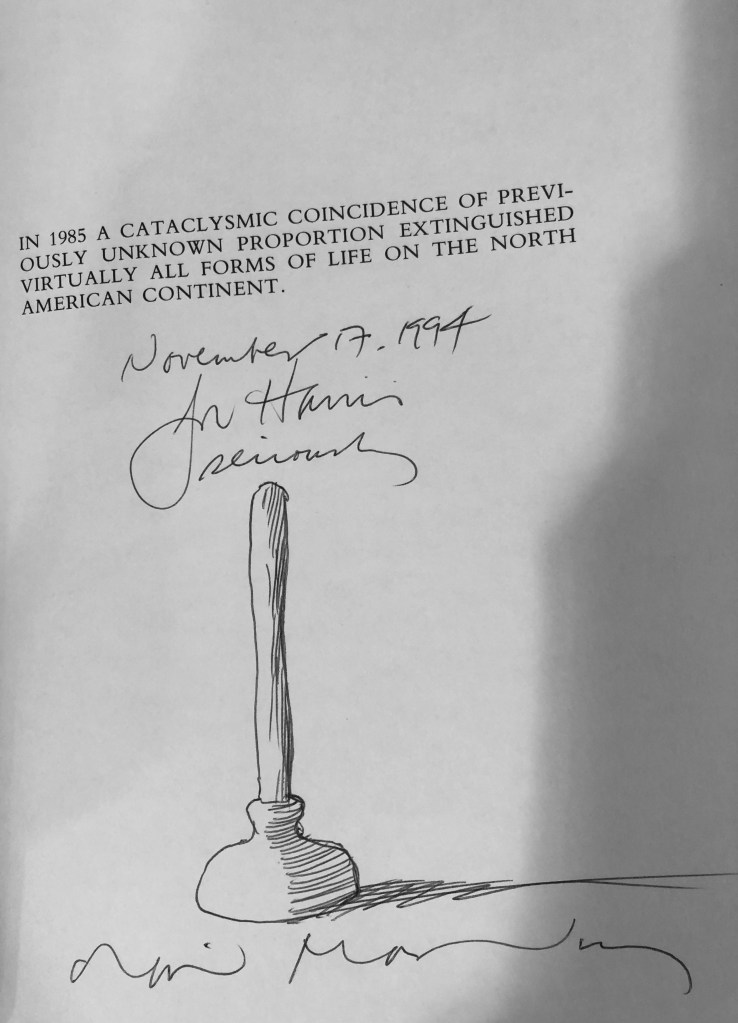 IN 1985 A CATACLYSMIC COINCIDENCE OF PREVI-
OUSLY UNKNOWN PROPORTION EXTINGUISHED
VIRTUALLY ALL FORMS OF LIFE ON THE NORTH
AMERICAN CONTINENT.
November 17. 1994
for Harris
seriously
David Macaulay